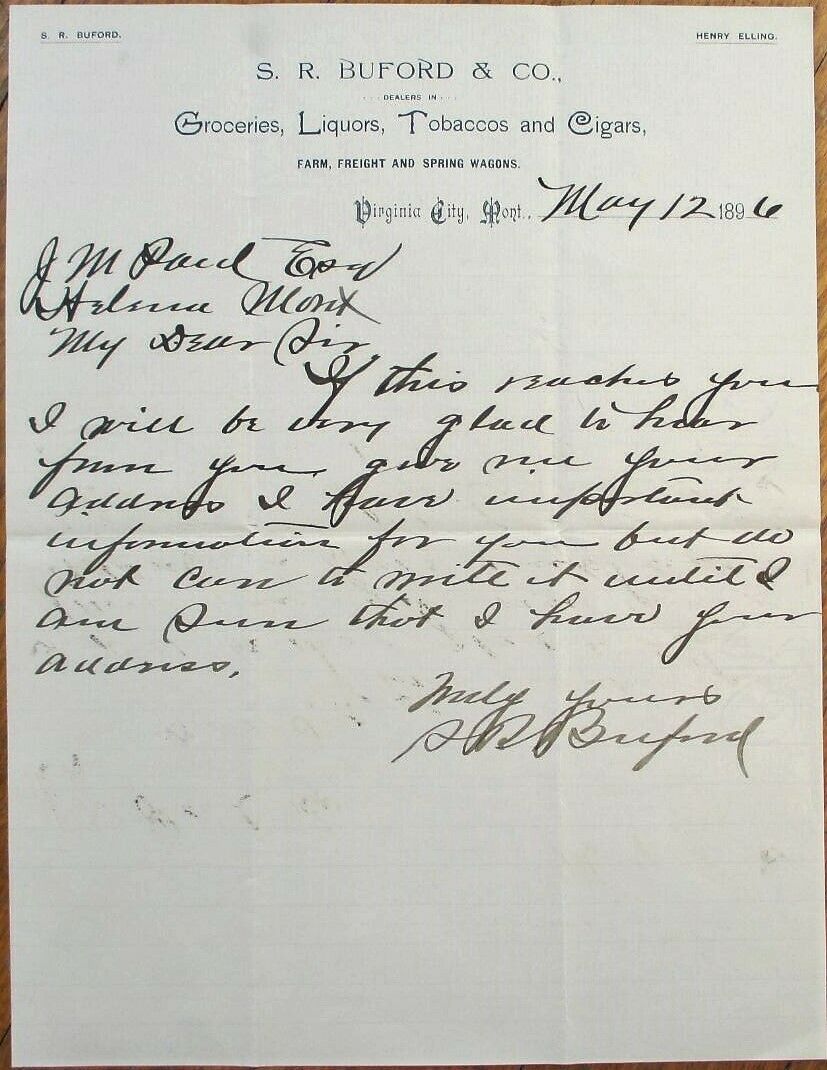 S. R. BUFORD.
HENRY ELLING.
S. R. BUFORD & CO.,
DEALERS IN
Groceries, Liquors, Tobaccos and Cigars,
FARM, FREIGHT AND SPRING WAGONS.
Virginia City, Mont., May 12 1896
J M Paul Esq
Helena Mont
My Dear Sir
If this reaches you
I will be very glad to hear
from you. give me your
address I have important
information for you but do
not care to write it until I
am sure that I have your
address.
Truly yours
S R Buford